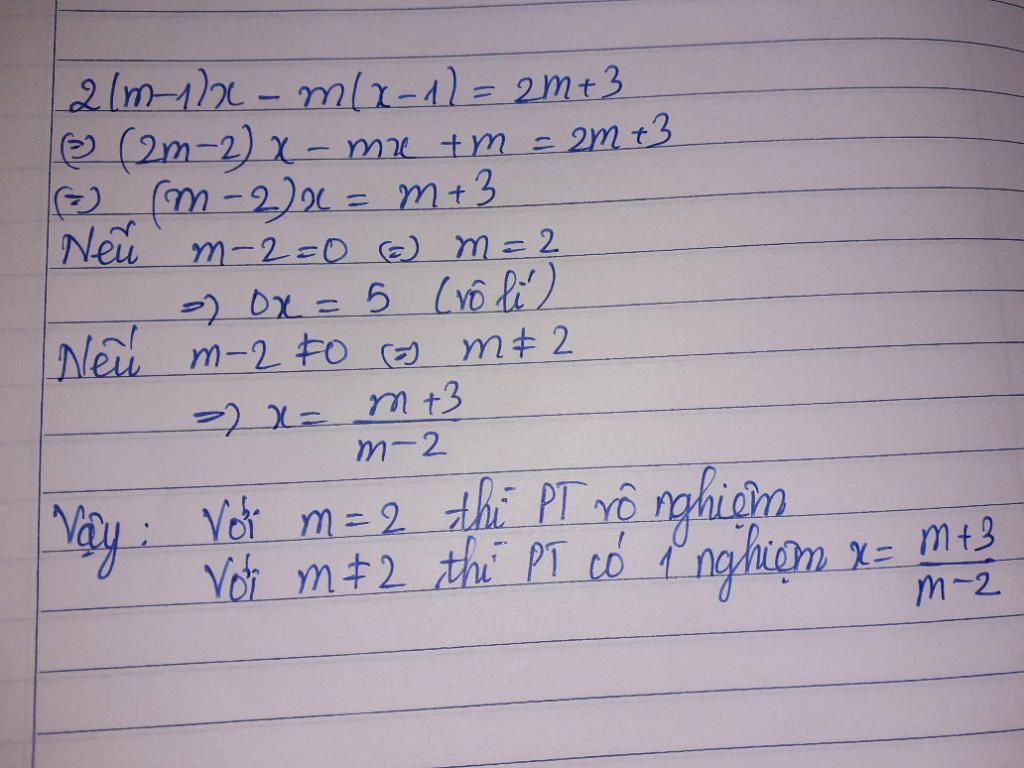 2(m-1)x - m(x-1) = 2m+3
⇔ (2m-2)x - mx +m = 2m+3
⇔ (m-2)x = m+3
Nếu m-2=0 ⇔ m=2
⇒ 0x = 5 (vô lí)
Nếu m-2≠0 ⇔ m≠2
⇒ x = (m+3)/(m-2)
Vậy: Với m=2 thì PT vô nghiệm
Với m≠2 thì PT có 1 nghiệm x = (m+3)/(m-2)